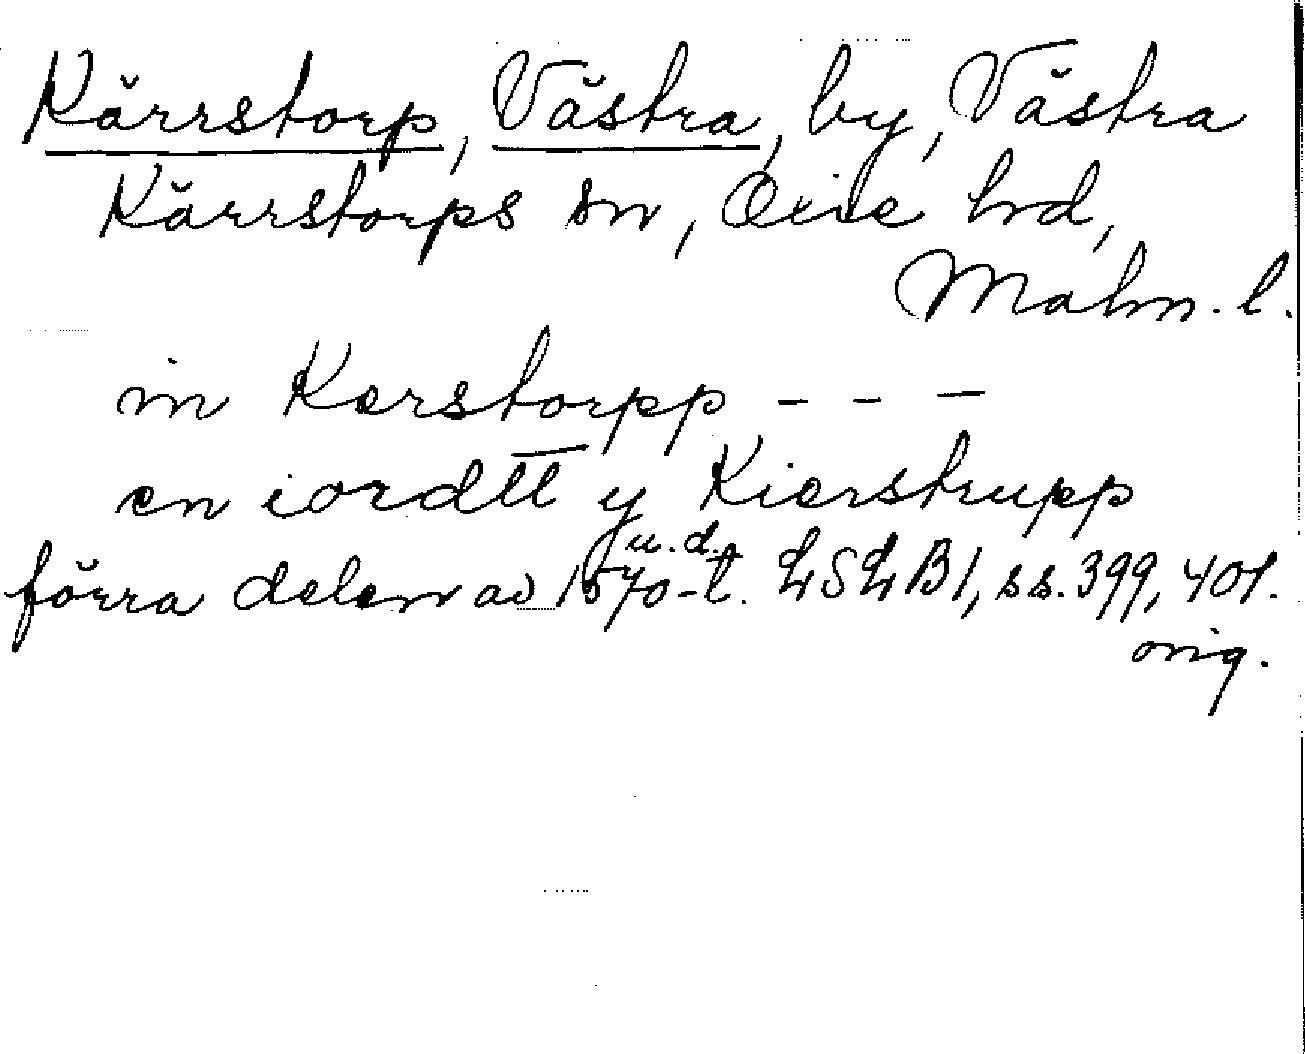 Kärrstorp, Västra, by, Västra
Kärrstorps sn, Oxie hd,
Malm. l.
im Kerstorpp - - -
en iordtt y Kierstrupp
u. d.
förra delen av 1570-t. LSLB1, ss. 399, 401.
orig.